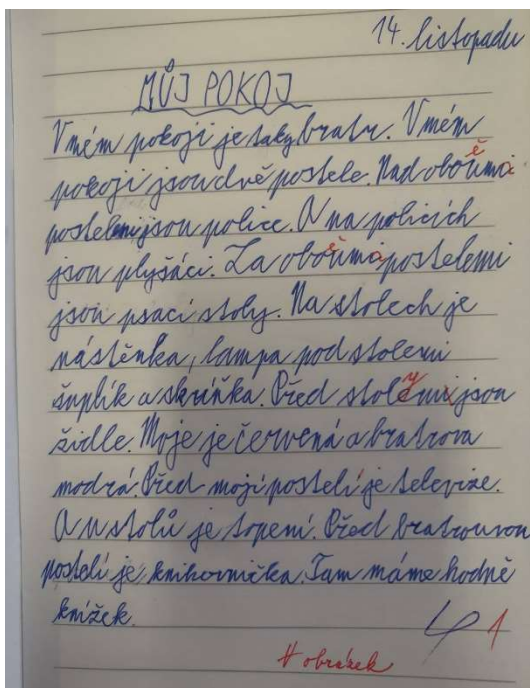 14. listopadu
MŮJ POKOJ
V mém pokoji je taky bratr. V mém
pokoji jsou dvě postele. Nad oboěma
postelemi jsou police. A na policích
jsou plyšáci. Za oboěma postelemi
jsou psací stoly. Na stolech je
nástěnka, lampa pod stolem
šuplík a skříňka. Před stoly jsou
židle. Moje je červená a bratrova
modrá. Před mojí postelí je televize.
A u stolů je topení. Před bratrovou
postelí je knihovnička. Tam máme hodně
knížek.
1
+ obrázek